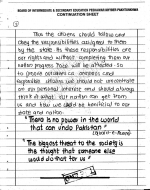 BOARD OF INTERMEDIATE & SECONDARY EDUCATION
CONTINUATION SHEET
Thus the citizens should follow and
obey the responsibilities assigned to them
by the state. As these responsibilities are
our rights and without completing them our
nation progress
will be affected. So
as people
responsible citizens we should not concentrate on
our personal interests and should always
think of what our nation can get from
us and how we could be beneficial to our
state and nation.
"There is no power in the world
that can undo Pakistan"
"The biggest threat to the society is
the thought that someone else
would do that for us"